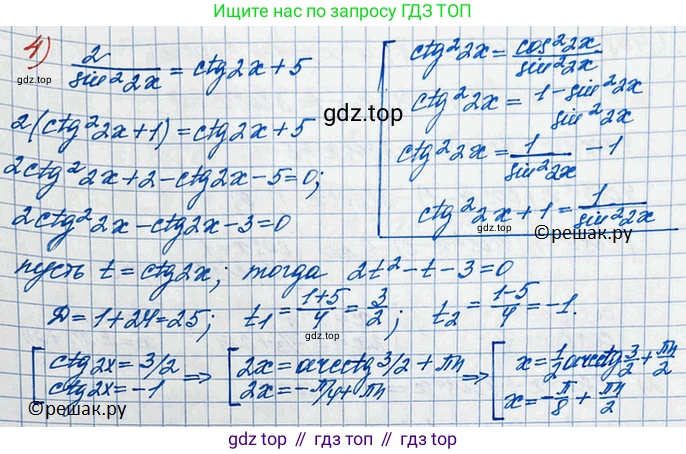 Ищите нас по запросу ГДЗ ТОП
4) 2/sin²2x = ctg2x + 5
gdz.top
2(ctg²2x + 1) = ctg2x + 5
2ctg²2x + 2 - ctg2x - 5 = 0;
2ctg²2x - ctg2x - 3 = 0
ctg²2x = cos²2x/sin²2x
gdz.top
ctg²2x = 1 - sin²2x/sin²2x
ctg²2x = 1/sin²2x - 1
ctg²2x + 1 = 1/sin²2x
gdz.top
©решак.ру
пусть t = ctg2x; тогда 2t² - t - 3 = 0
Д = 1 + 24 = 25; t₁ = 1+5/4 = 3/2; t₂ = 1-5/4 = -1.
[ctg2x = 3/2 => [2x = arcctg 3/2 + πn => [x = 1/2 arcctg 3/2 + πn/2
ctg2x = -1 2x = -π/4 + πn x = -π/8 + πn/2
©решак.ру
gdz.top
gdz top // гдз топ // gdz.top